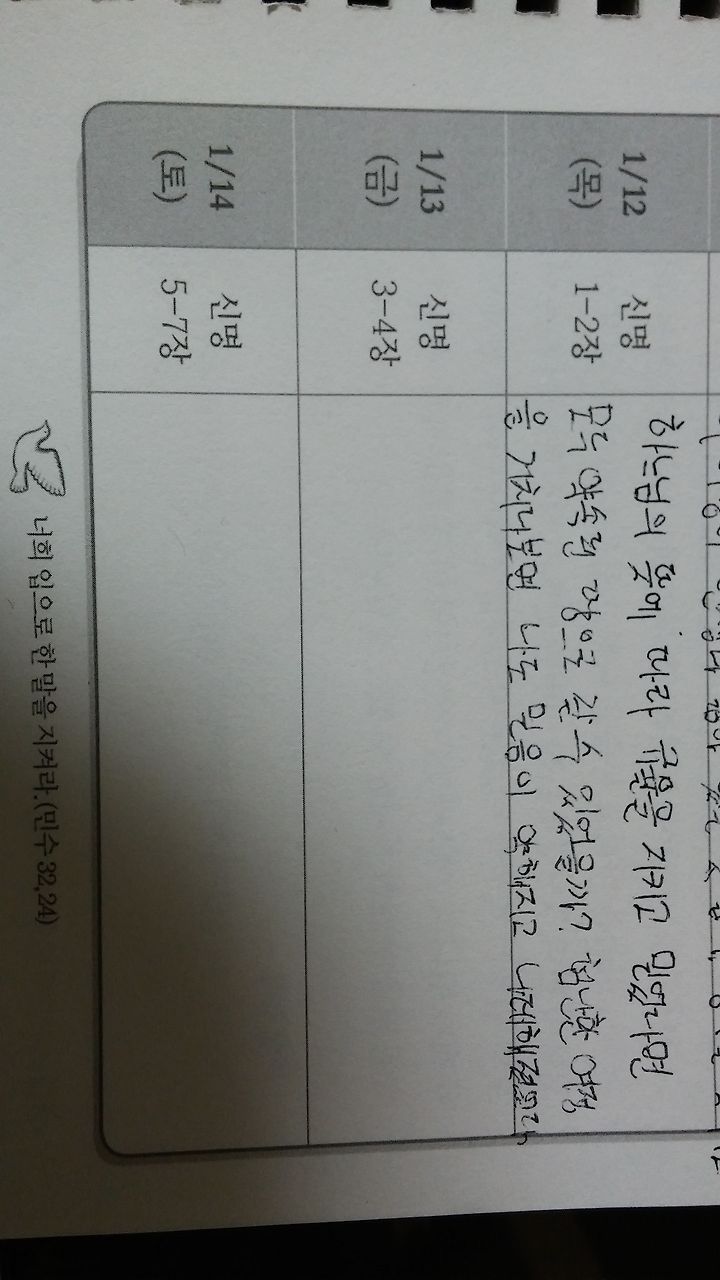 1/12
(목)
신명
1-2장
하느님의 뜻에 따라 규율을 지키고 믿었다면
모두 약속된 땅으로 갈 수 있었을까? 험난한 여정
을 거치다보면 나도 믿음이 약해지고
1/13
(금)
신명
3-4장
1/14
(토)
신명
5-7장
너희 입으로 한 말을 지켜라.(민수 32,24)